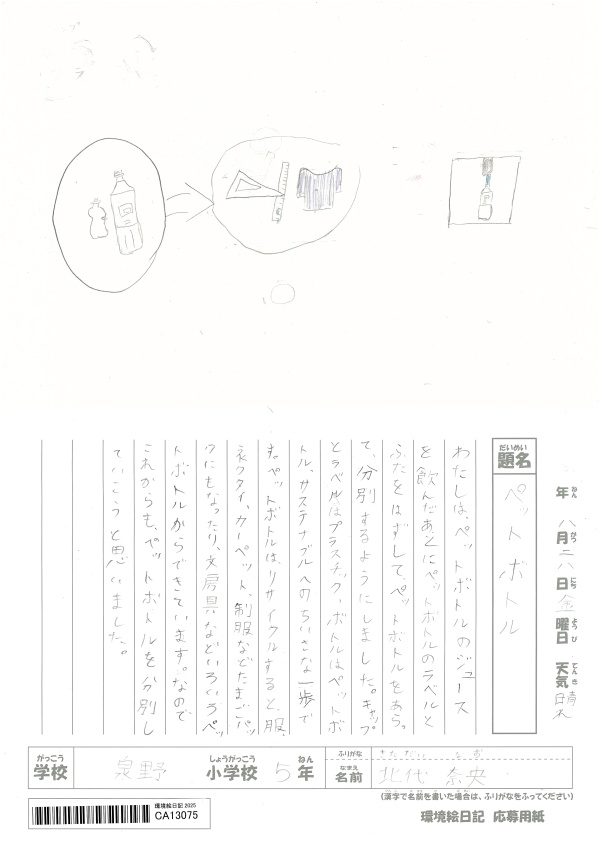 年 八月二八日 金曜日 天気 晴れ
ねん がつ にち ようび てんき
だいめい
題名 ペットボトル
わたしは、ペットボトルのジュース
を飲んだあとにペットボトルのラベルと
ふたをはずして、ペットボトルをあらっ
て、分別するようにしました。キャップ
とラベルはプラスチック、ボトルはペットボ
トル、サステナブルへのちいさな一歩で
す。ペットボトルは、リサイクルすると、服、
ネクタイ、カーペット、制服などたまごパッ
クにもなったり、文房具などいろいろペッ
トボトルからできています。なので
これからも、ペットボトルを分別し
ていこうと思いました。
がっこう しょうがっこう ねん ふりがな きただい なお
学校 泉野 小学校 5年 なまえ 名前 北代 奈央
(漢字で名前を書いた場合は、ふりがなをふってください)
環境絵日記 2025
CA13075
環境絵日記 応募用紙